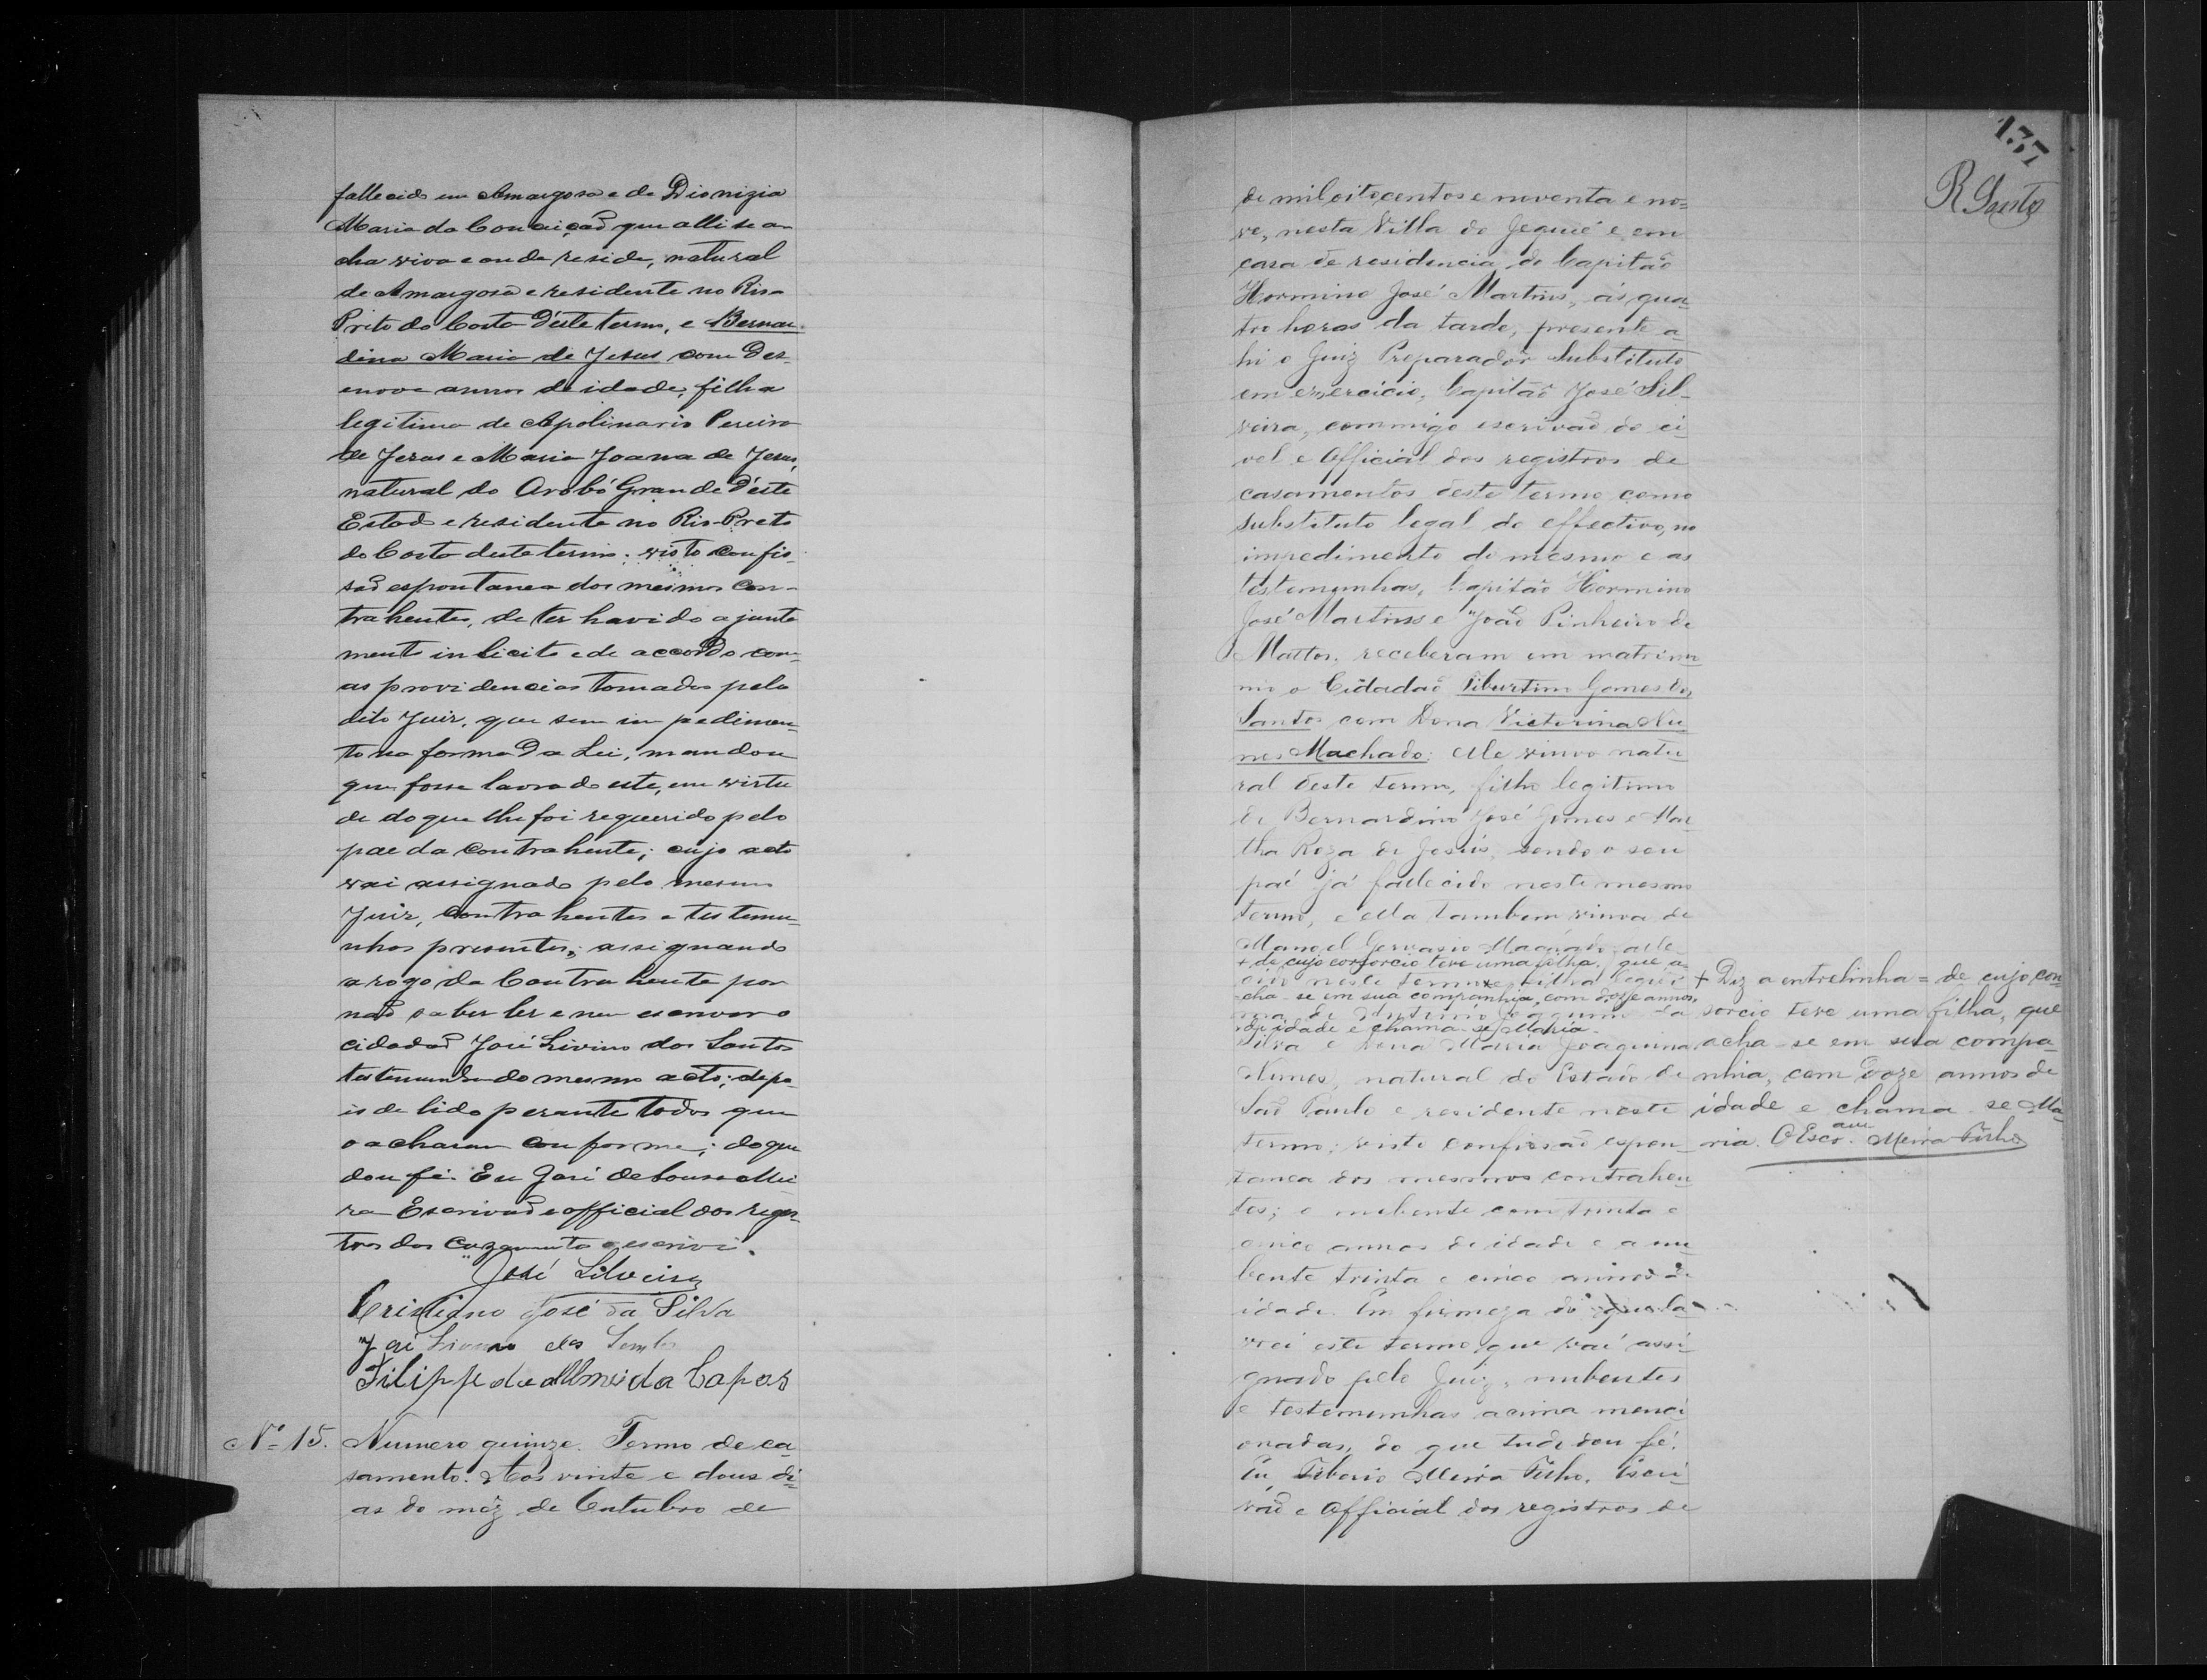 fallecido em Amargosa e de Dionizia
Maria da Conceição que alli se a-
cha viva e onde reside, natural
de Amargosa e residente no Rio-
Preto do Costa d'este termo, e Bernar-
dina Maria de Jesus com dez-
enove annos de idade, filha
legitima de Apolinario Pereira
de Jesus e Maria Joana de Jesus,
natural do Orobó Grande d'este
Estado e residente no Rio-Preto
do Costa deste termo; visto confis-
são espontanea dos mesmos con-
trahentes, de ter havido ajunta
mento inlicito e de accordo com
as providencias tomadas pelo
dito Juiz, que sem impedimen-
to na forma da Lei, mandou
que fosse lavrado este, em virtu
de do que lhe foi requerido pelo
pae da contrahente; cujo acto
vai assignado pelo mesmo
Juiz, contrahentes e testemu-
nhas presentes; assignando
a rogo da Contrahente por
não saber ler e nem escrever o
cidadão José Livino dos Santos
testemunha do mesmo acto; depo-
is de lido perante todos que
o acharam conforme; do que
dou fé. Eu José de Sousa Mei-
ra Escrivão e official dos regis-
tros dos Cazamentos o escrivi.
José Silveira
Cristiano José da Silva
José Livino dos Santos
Filippe de Almeida
Nº 15. Numero quinze. Termo de ca
samento. Aos vinte e dous di-
as do mez de Outubro de
137
R Santos
de mil oitocentos e noventa e no-
ve, nesta Villa de Jequié e em
casa de residencia do Capitão
Hormino José Martins, ás qua-
tro horas da tarde, presente a-
hi o Juiz Preparador Substituto
em exercicio, Capitão José Sil-
veira, commigo escrivão do ci-
vel e Official dos registros de
casamentos deste termo como
substituto legal do effectivo, no
impedimento do mesmo e as
testemunhas, Capitão Hormino
José Martins e João Pinheiro de
Mattos, receberam em matrimo
nio o Cidadão Tiburtino Gomes dos
Santos com Dona Victorina Nu
nes Machado; elle viuvo natu
ral deste termo, filho legitimo
de Bernardino José Gomes e Mar
tha Roza de Jesus, sendo o seu
pai já fallecido neste mesmo
termo, e ella tambem viuva de
Manoel Gervasio Machado, falle
+ de cujo consorcio teve uma filha, que a-
cido neste termo, + filha legiti
cha-se em sua companhia, com doze annos
ma de Joaquim da
de idade e chama-se Maria.
Silva e Dona Maria Joaquina
Nunes, natural do Estado de
São Paulo e residente neste
termo; visto confissão espon
tanea dos mesmos contrahen
tes; o nubente com trinta e
cinco annos de idade e a nu
bente trinta e cinco annos de
idade. Em firmeza do que la-
vrei este termo que vai assi-
gnado pelo Juiz, nubentes
e testemunhas acima menci
onadas, do que tudo dou fé.
Eu, Tiberio Meira Filho, Escri-
vão e Official dos registros de
+ Diz a entrelinha = de cujo con-
sorcio teve uma filha, que
acha-se em sua compa-
nhia, com doze annos de
idade e chama-se Ma-
ria. O Escr. Meira Filho